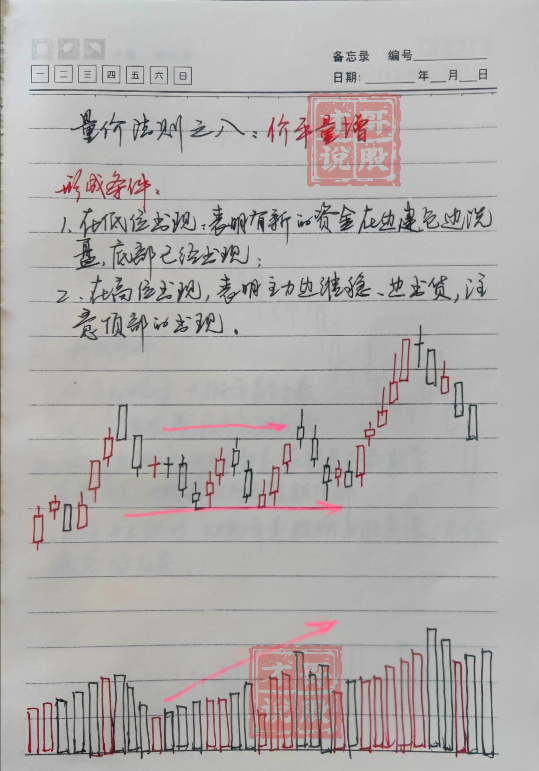 备忘录 编号
一 二 三 四 五 六 日
日期: 年 月 日
量价法则之八：价平量增
形成条件：
1、在低位出现：表明有新的资金在边建仓边洗
盘，底部已经出现；
2、在高位出现，表明主力边维稳、边出货，注
意顶部的出现。
说股
说股